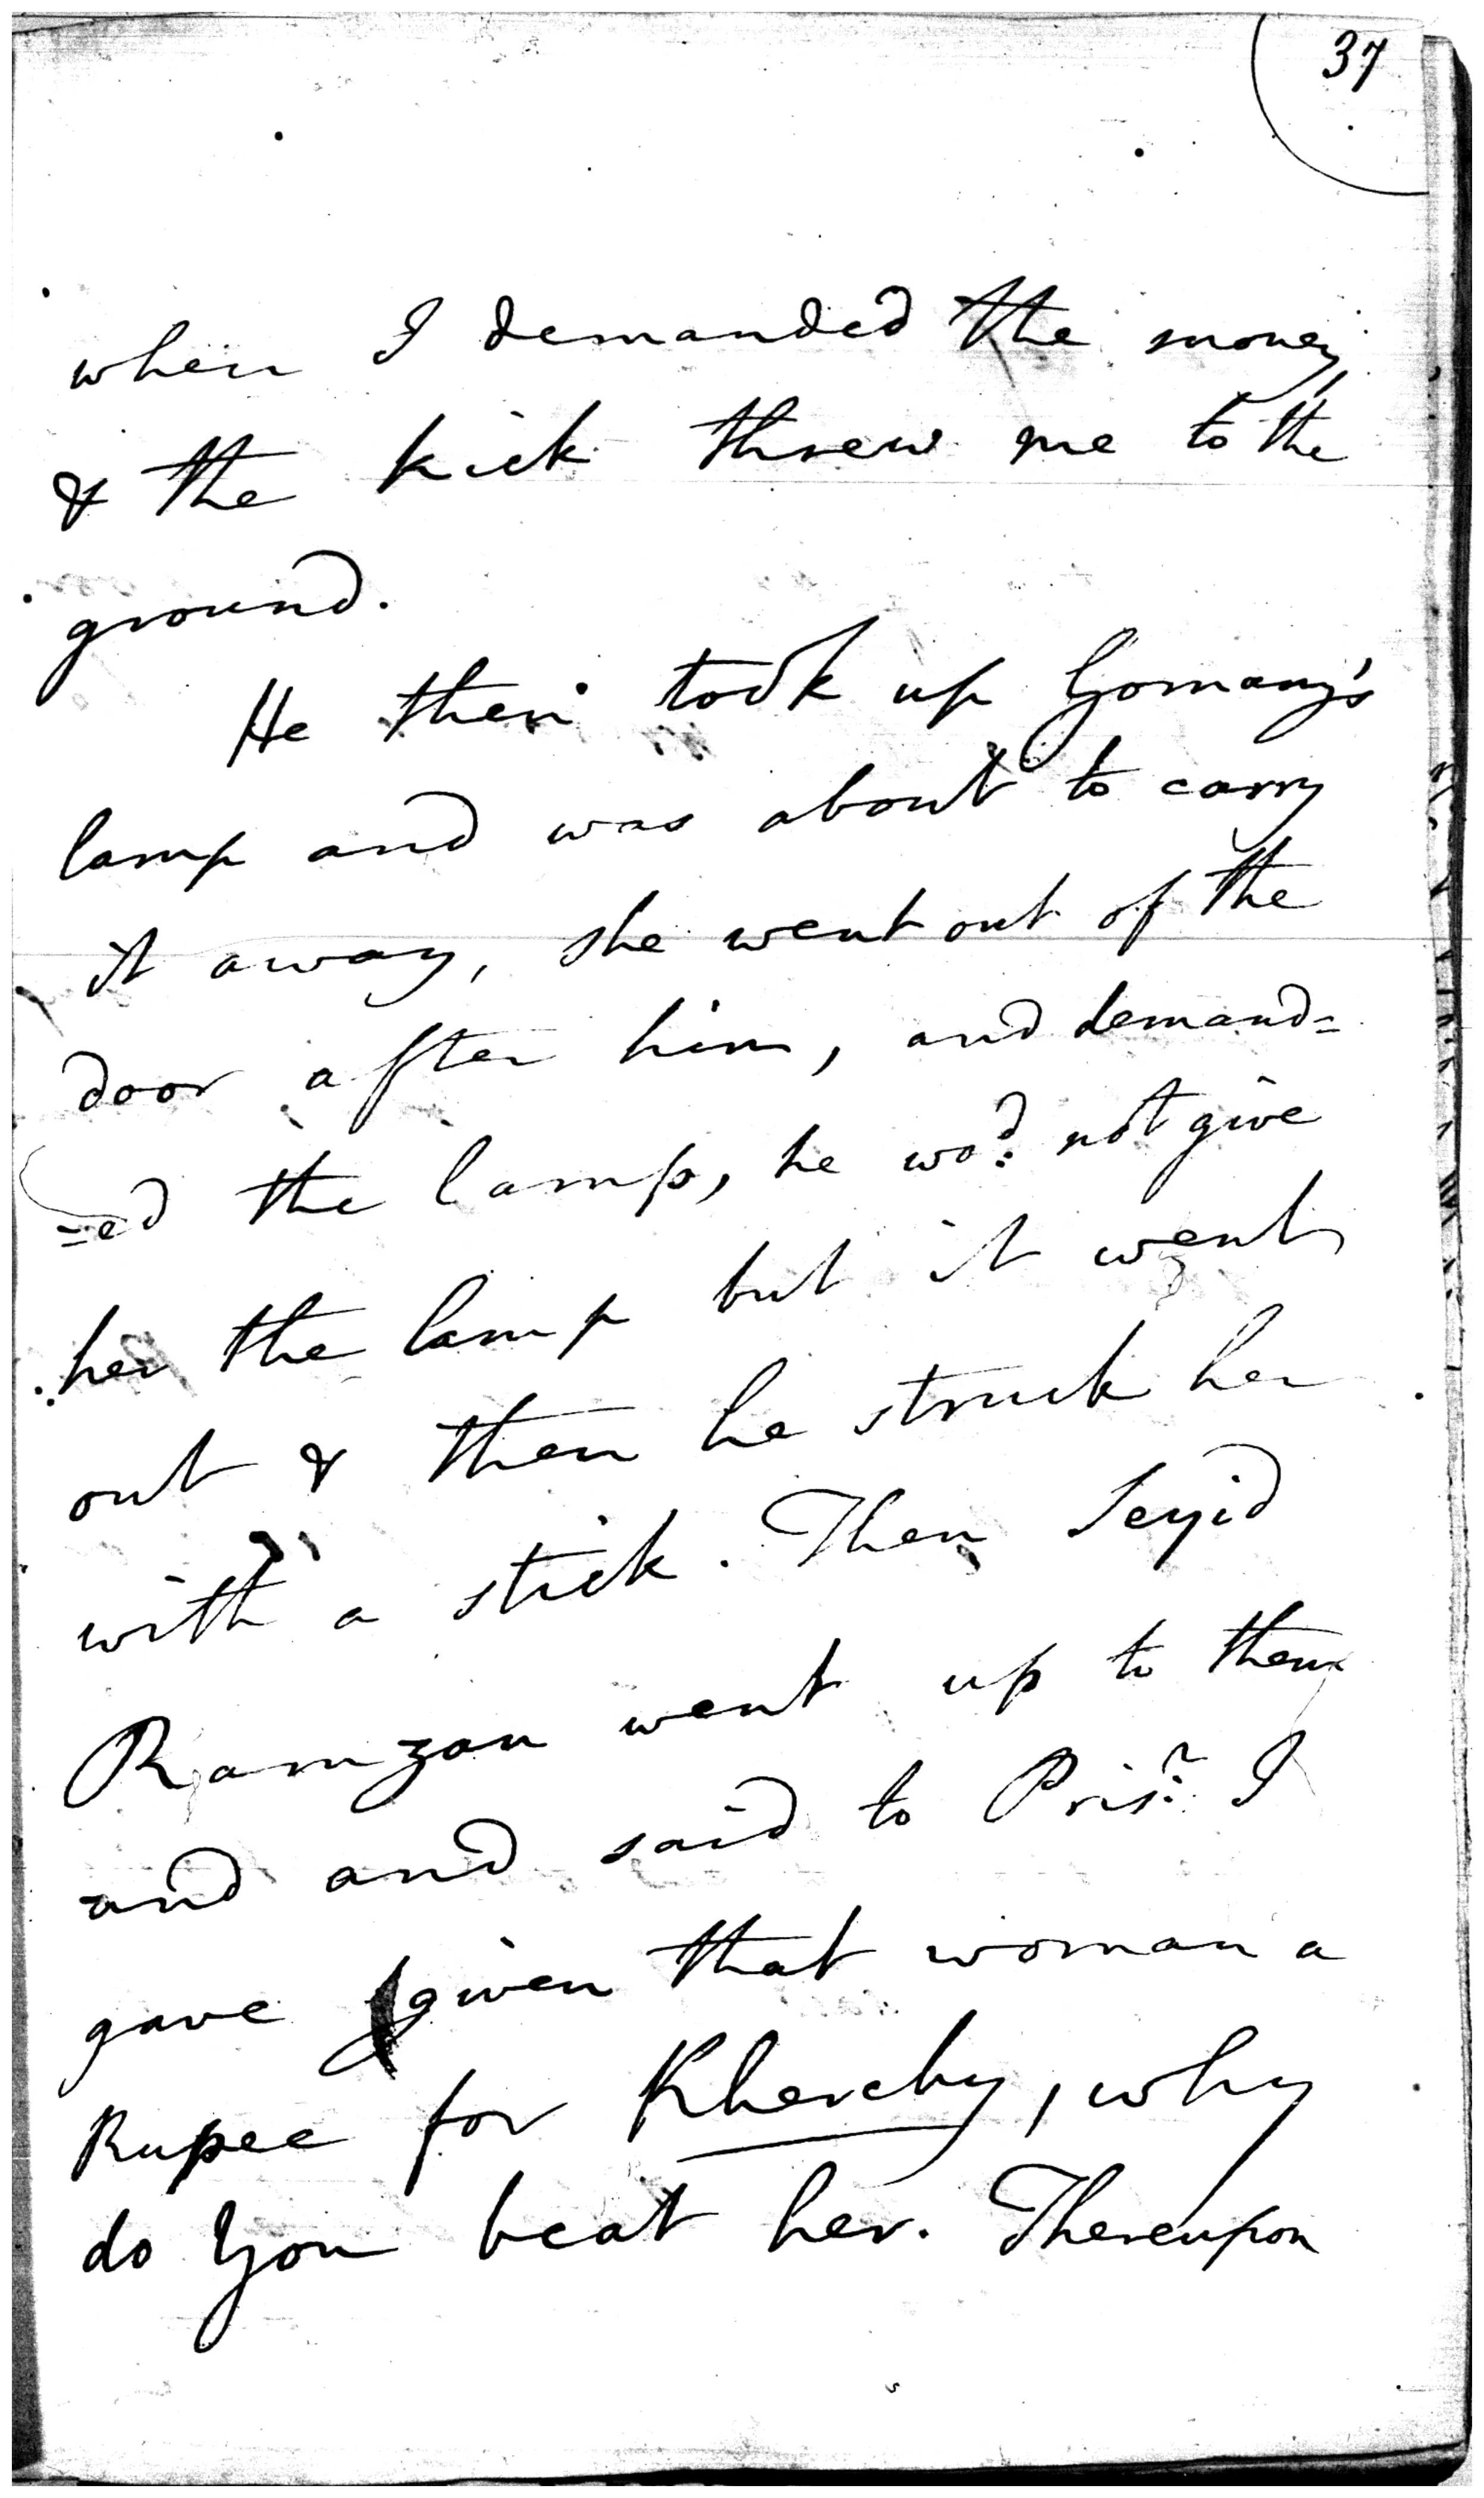 37
when I demanded the money
& the kick threw me to the
ground.
He then took up Gomany's
lamp and was about to carry
it away, she went out of the
door after him, and demand=
=ed the lamp, he wod. not give
her the lamp but it went
out & then he struck her
with a stick. Then Seyid
Ramzan went up to them
and and said to Prisr. I
gave given that woman a
Rupee for Khercby, why
do You beat her. Thereupon